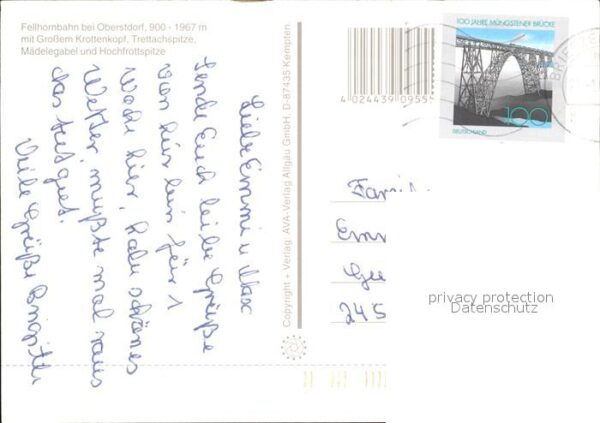 Fellhornbahn bei Oberstdorf, 900 - 1967 m
mit Großem Krottenkopf, Trettachspitze,
Mädelegabel und Hochfrottspitze
Liebe Emmi u Max
sende Euch liebe Grüße
von hier bin für 1
Woche hier, habe schönes
Wetter, mußte mal raus
das tut gut.
Viele Grüße Brigitte
Copyright + Verlag: AVA-Verlag Allgäu GmbH, D-87435 Kempten.
4 024439 0955
100 JAHRE MÜNGSTENER BRÜCKE
100
DEUTSCHLAND
BRIEF
Fami
Em
Ge
245
privacy protection
Datenschutz